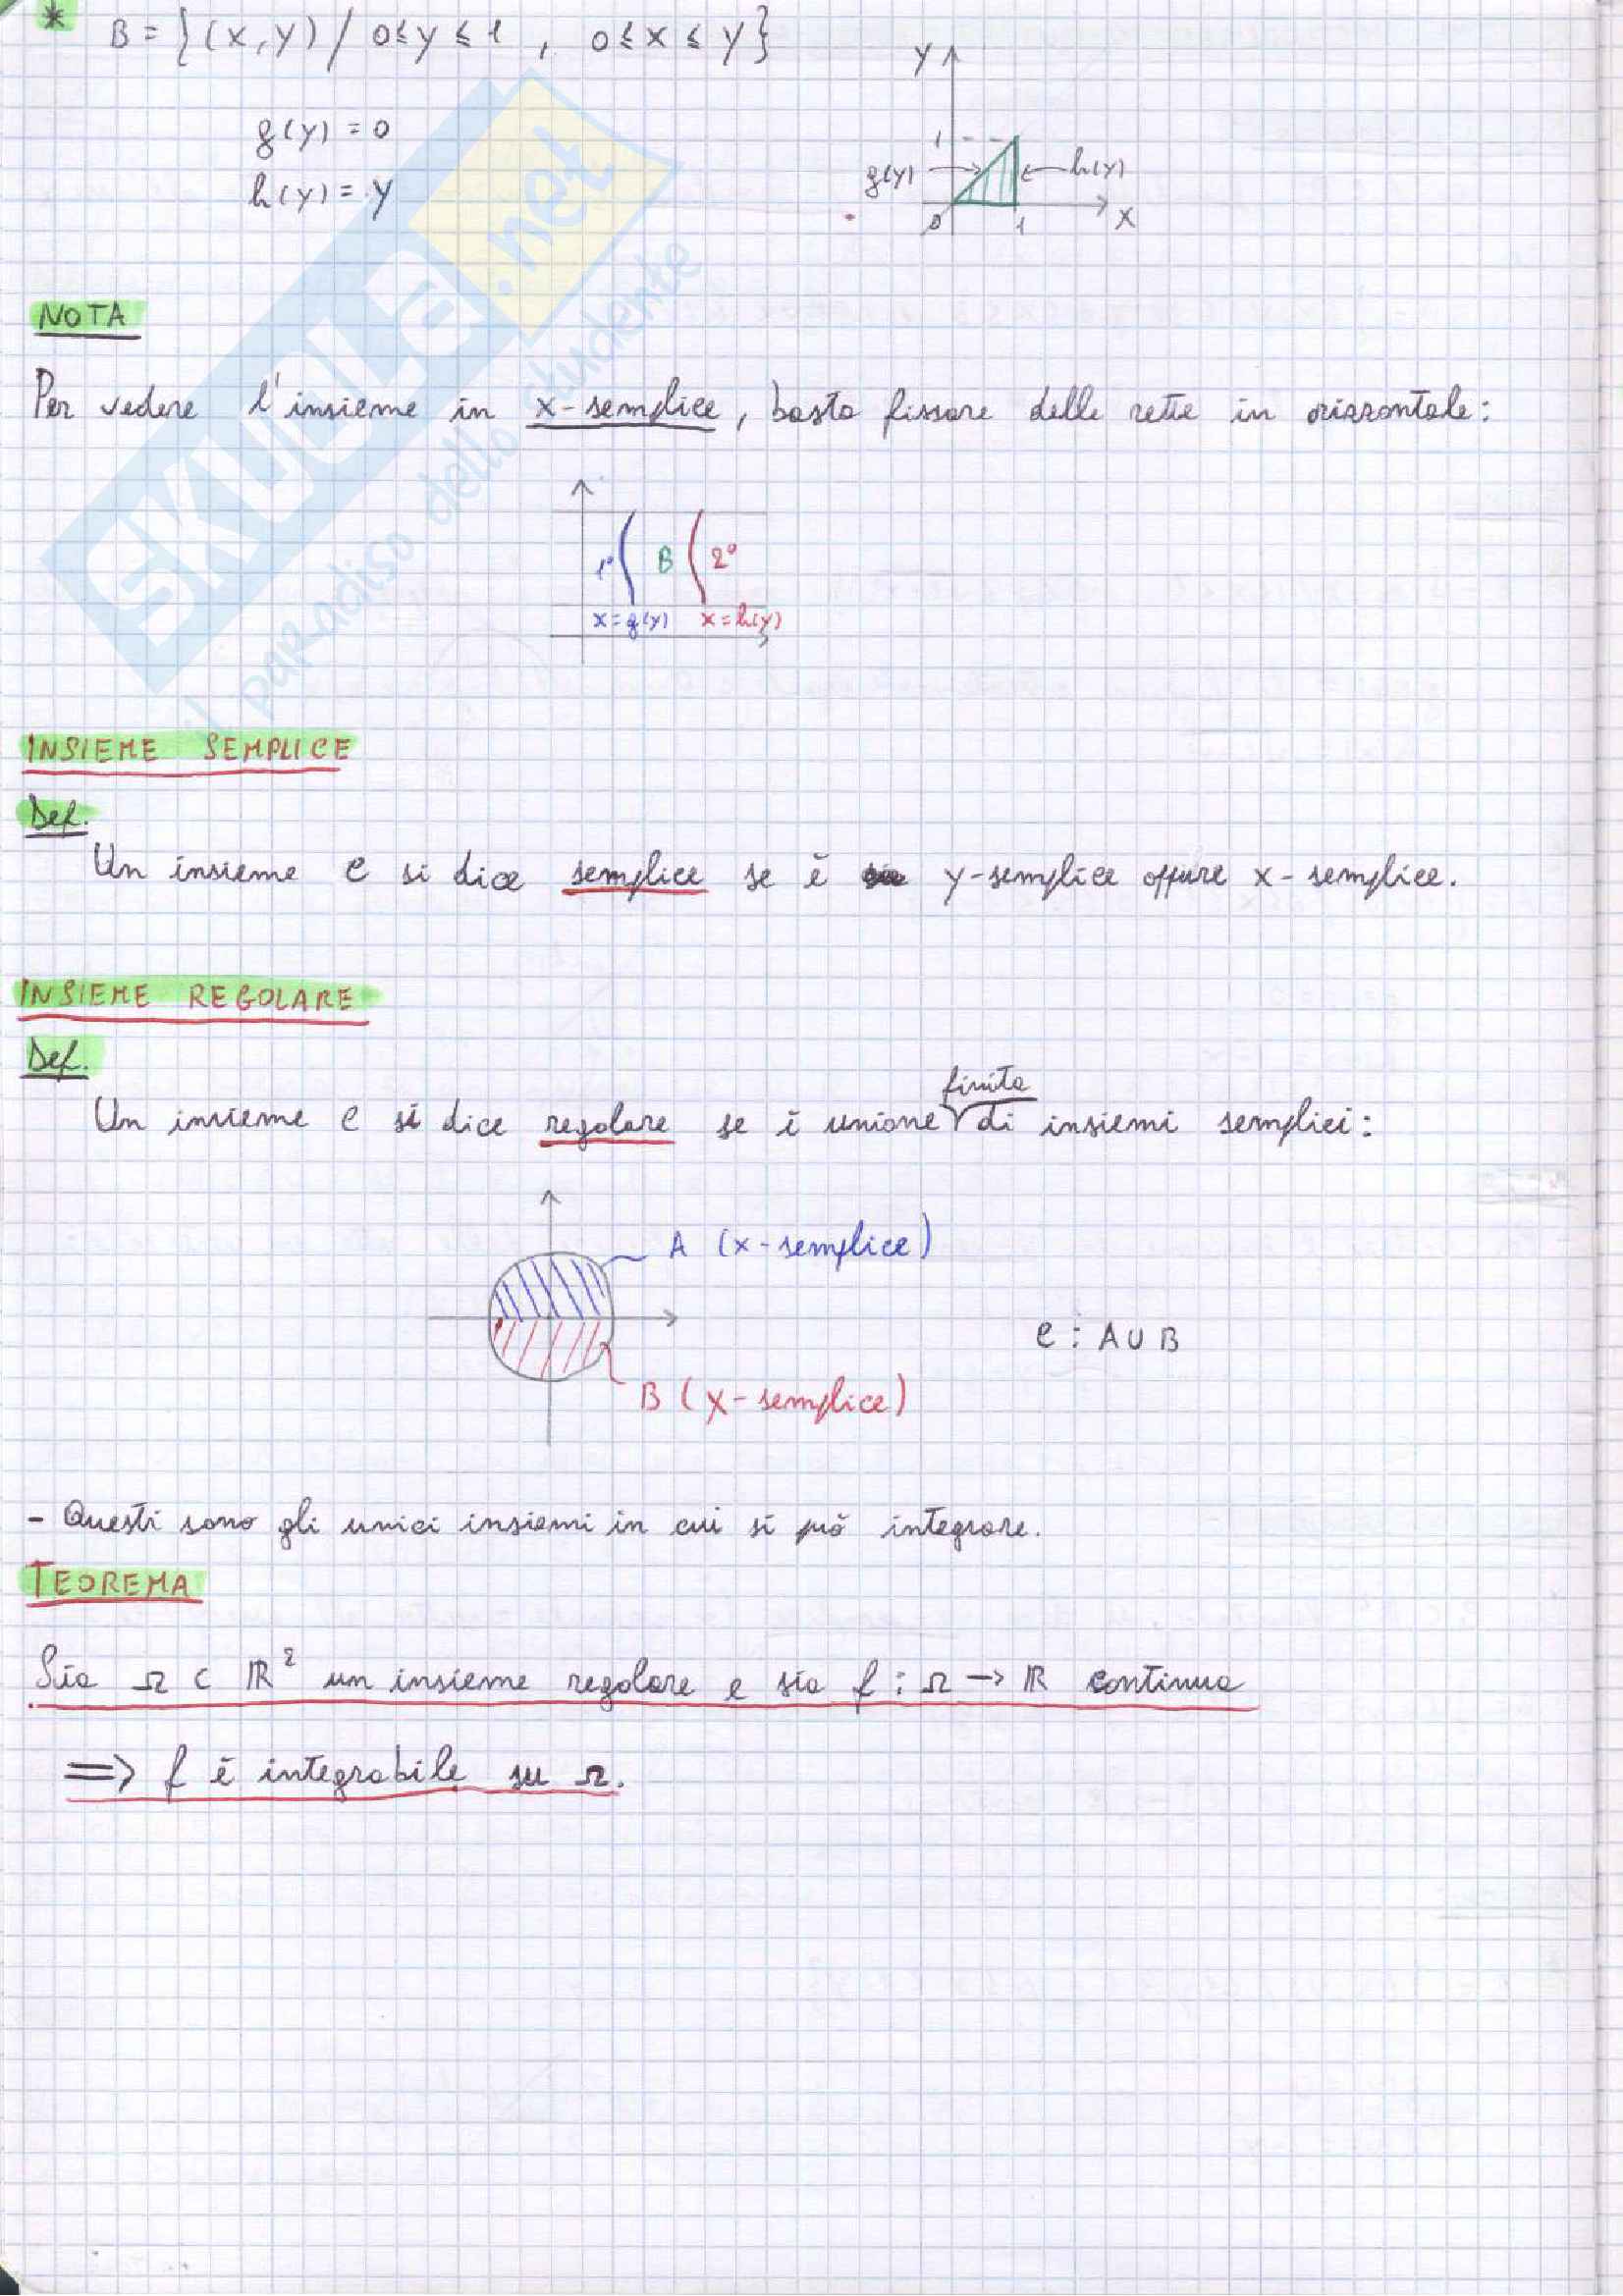 * B = {(x,y) / 0≤y≤1 , 0≤x≤y}
g(y) = 0
h(y) = y
y
1
g(y)
h(y)
0
1
x
NOTA
Per vedere l'insieme in x-semplice, basta fissare delle rette in orizzontale:
1°
B
2°
x=g(y)
x=h(y)
INSIEME SEMPLICE
Def.
Un insieme C si dice semplice se è y-semplice oppure x-semplice.
INSIEME REGOLARE
Def.
Un insieme C si dice regolare se è unione finita di insiemi semplici:
A (x-semplice)
C : A ∪ B
B (x-semplice)
- Questi sono gli unici insiemi in cui si può integrare.
TEOREMA
Sia Ω ⊂ ℝ² un insieme regolare e sia f : Ω → ℝ continua
⟹ f è integrabile su Ω.
SKUOLA.net
il paradiso dello studente